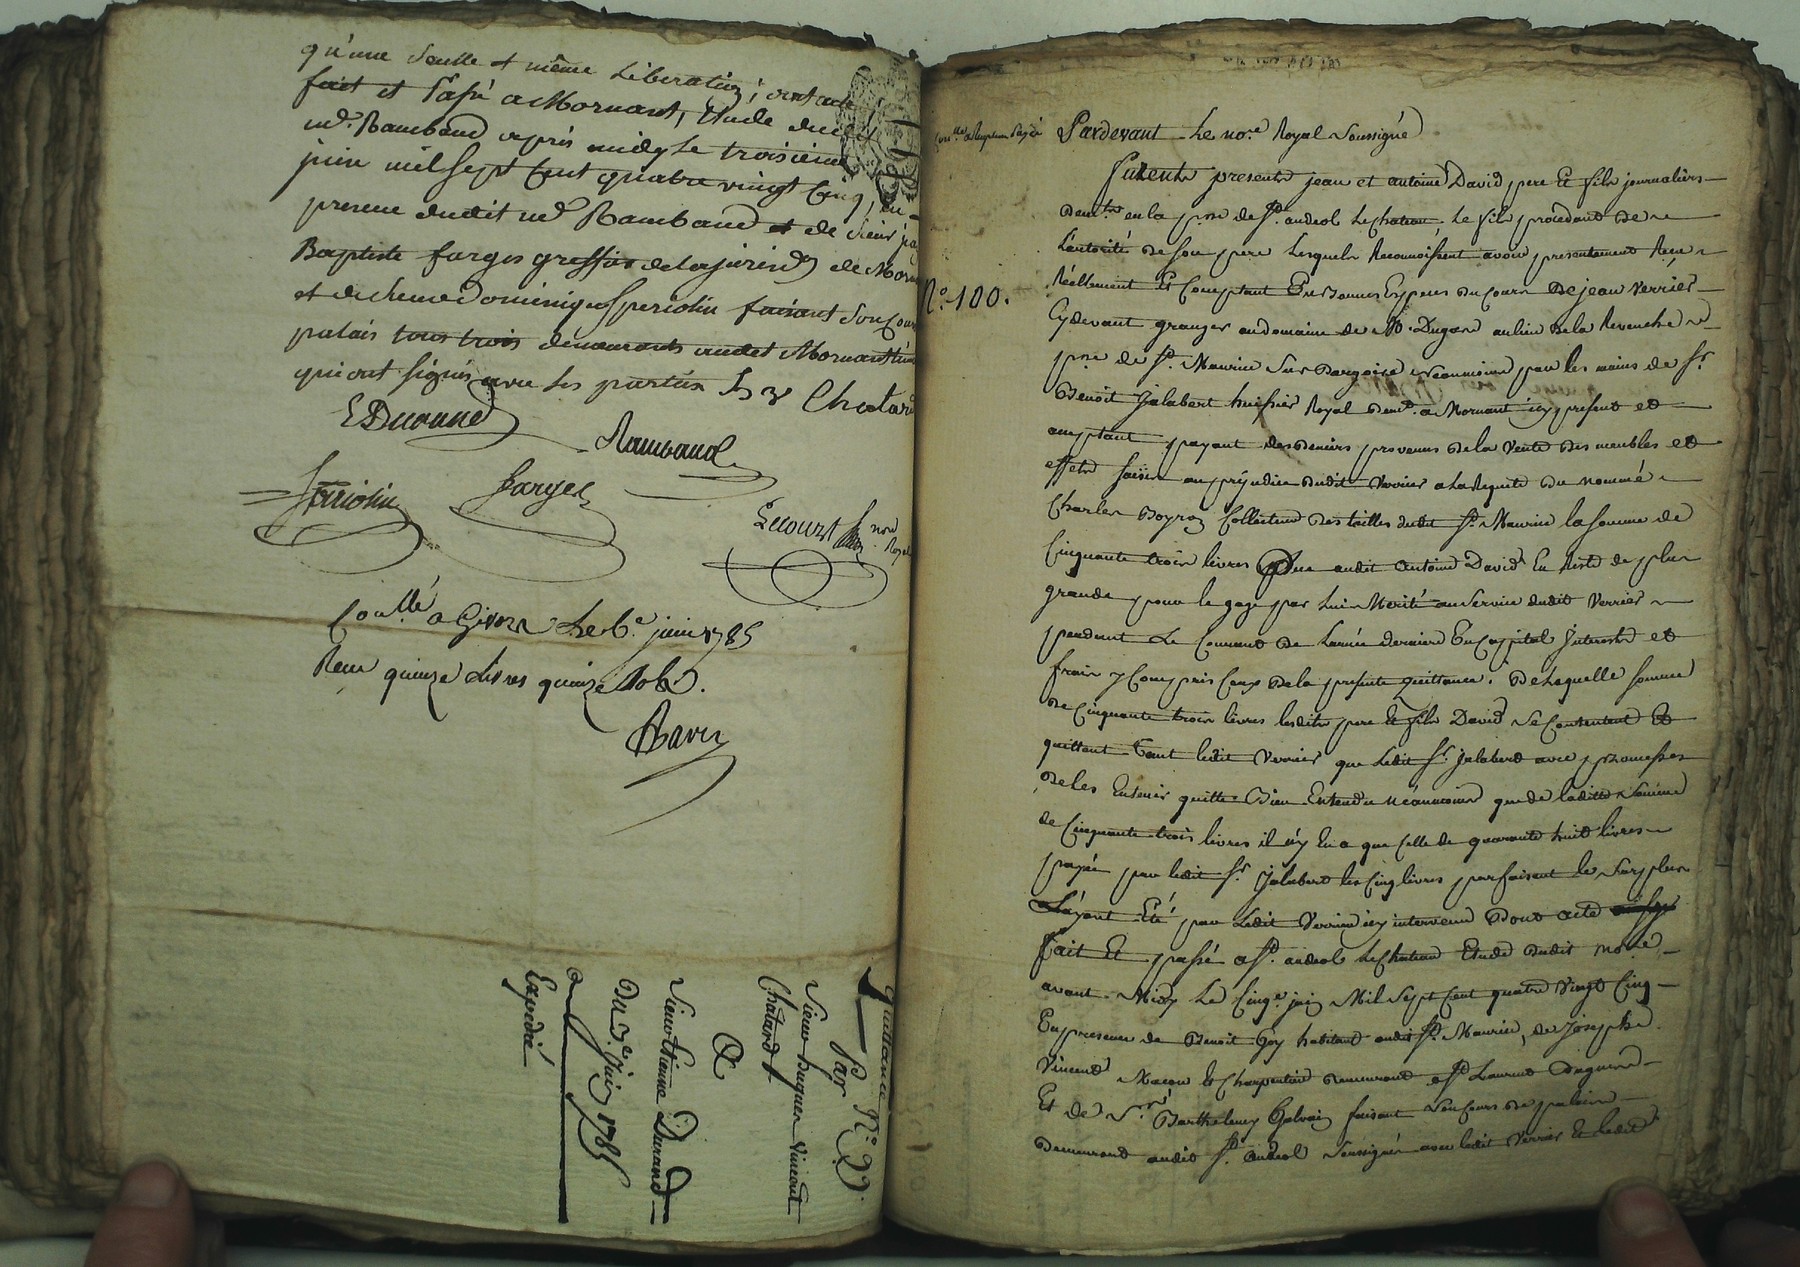 qu'une seulle et même Liberation; dont acte
fait et Passé a Mornant, Etude dudit
md. Rambaud après midy Le troisieme
juin mil sept Cent quatre vingt Cinq, en
presence dudit md Rambaud et de Sieur jean
Baptiste farges greffier de la jurisdon de Mornant
et de Sieur dominique Speriolin faisant Son Cours
palais tous trois demeurants audit Mornant
qui ont signés avec les parties
Chatard
E Durand
Rambaud
Speriolin
Farges
Lecourt
nore Royal
Conllé a Givors Le 6e juin 1785
Recu quinze Livres quinze sols.
Ravier
Quittance N.° 99.
Par
Sieur hugues Vincent
Chatard
A
Sieur Etienne Durand
Du 3e Juin 1785
Expedié
Conllé
N.° 100.
Pardevant Le nore Royal Soussigné
furent presents jean et antoine David pere et fils journaliers
demts en la psse de St. andeol Le chateau, Le fils procedant de
L'autorité de son pere Lesquels Reconnoissent avoir presentement Recu
Réellement et Comptant En bonnes Especes du Cours de jean Verrier
Cydevant granger au domaine de M. Dugas au lieu de la Revenche
psse de St. Maurice Sur Dargoire neanmoins par les mains de Sr.
Benoit Jalabert huissier Royal demt. a Mornant icy present et
acceptant payant des deniers provenus de la Vente des meubles et
effets saisies au prejudice dudit Verrier a la Requete du nommé
Charles Boyron Collecteur des tailles dudit St. Maurice la Somme de
Cinquante trois livres Due audit antoine David En Reste de plus
grande pour le gage par Lui Merité au Service dudit Verrier
pendant Le Courant de L'année derniere En Capital Interets et
frais y Compris Ceux de la presente quittance. De Laquelle Somme
de Cinquante trois livres lesdits pere et fils David Se Contentent et
quittent tant ledit Verrier que Ledit Sr. Jalabert avec promesses
de les En tenir quitte Bien Entendu néanmoins que de laditte Somme
de Cinquante trois livres il n'y En a que Celle de quarante huit livres
payée par ledit Sr. Jalabert les Cinq livres parfaisant le Surplus
L'ayant Eté par Ledit Verrier icy intervenu Dont acte
fait Et passé a St. andeol Le Chateau Etude dudit nore
avant Midy Le Cinqe juin Mil Sept Cent quatre Vingt Cinq
En presence de Benoit Goy habitant audit St. Maurice, de Josephe
Vincent Macon et Charpentier demeurant a St Laurent Dagnins
Et de Sr. Barthelemy Galvain faisant Son Cours de palais
Demeurant audit St. Andeol Soussignés avec ledit Verrier et ledit